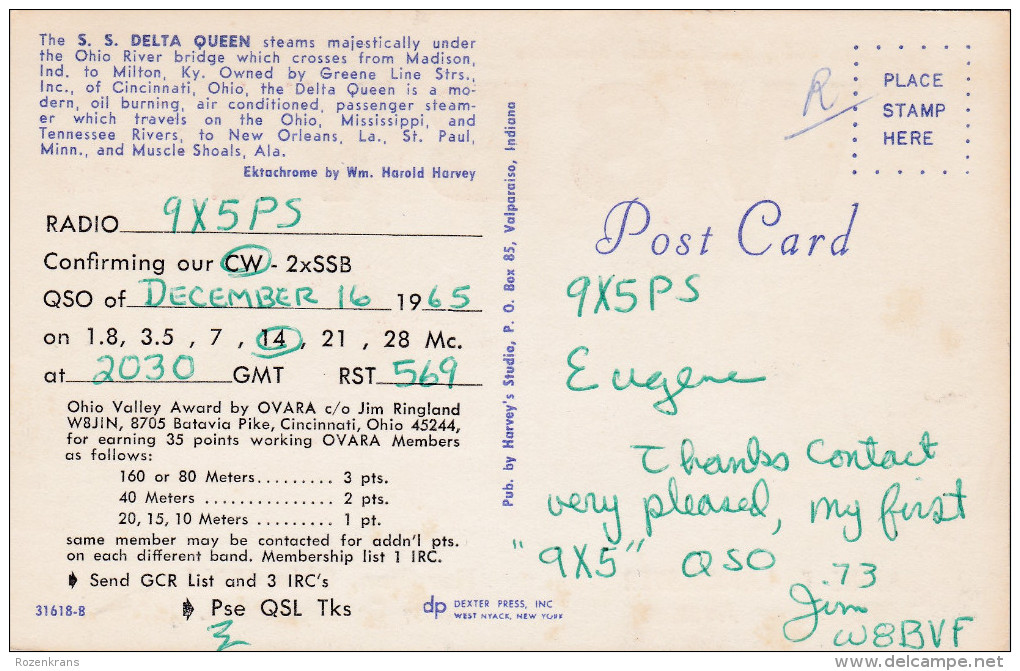 The S. S. DELTA QUEEN steams majestically under
the Ohio River bridge which crosses from Madison,
Ind. to Milton, Ky. Owned by Greene Line Strs.,
Inc., of Cincinnati, Ohio, the Delta Queen is a mo-
dern, oil burning, air conditioned, passenger steam-
er which travels on the Ohio, Mississippi, and
Tennessee Rivers, to New Orleans, La., St. Paul,
Minn., and Muscle Shoals, Ala.
Ektachrome by Wm. Harold Harvey
RADIO 9X5PS
Confirming our CW - 2xSSB
QSO of DECEMBER 16 1965
on 1.8, 3.5 , 7 , 14 , 21 , 28 Mc.
at 2030 GMT RST 569
Ohio Valley Award by OVARA c/o Jim Ringland
W8JIN, 8705 Batavia Pike, Cincinnati, Ohio 45244,
for earning 35 points working OVARA Members
as follows:
160 or 80 Meters......... 3 pts.
40 Meters ............... 2 pts.
20, 15, 10 Meters ......... 1 pt.
same member may be contacted for addn'l pts.
on each different band. Membership list 1 IRC.
Send GCR List and 3 IRC's
31618-B
Pse QSL Tks
Pub. by Harvey's Studio, P. O. Box 85, Valparaiso, Indiana
dp DEXTER PRESS, INC
WEST NYACK, NEW YORK
R
PLACE
STAMP
HERE
Post Card
9X5PS
Eugene
Thanks contact
very pleased, my first
"9X5" QSO
73
Jim
W8BVF
Rozenkrans
www.delcampe.net